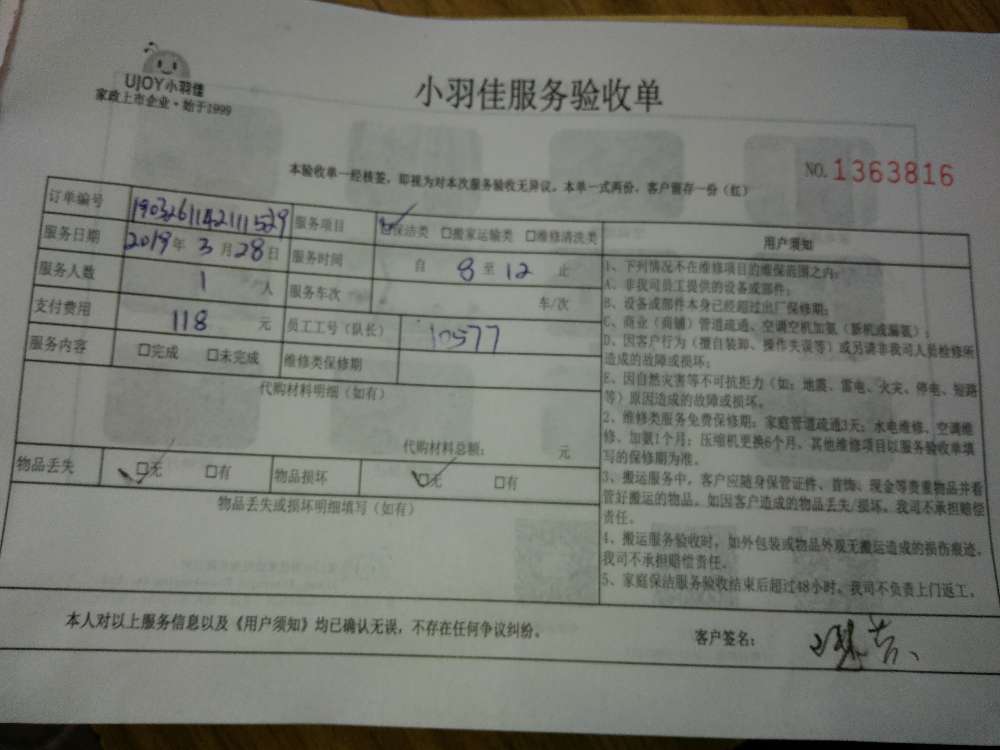 UJOY小羽佳
家政上市企业·始于1999
小羽佳服务验收单
NO.1363816
本验收单一经核签，即视为对本次服务验收无异议。本单一式两份，客户留存一份（红）
订单编号 1903261142111529 服务项目 ☑保洁类 □搬家运输类 □维修清洗类
服务日期 2019年3月28日 服务时间 自 8 至 12 止
服务人数 1 人 服务车次 车/次
支付费用 118 元 员工工号（队长） 10577
服务内容 □完成 □未完成 维修类保修期
代购材料明细（如有）
代购材料总额： 元
物品丢失 ☑无 □有 物品损坏 ☑无 □有
物品丢失或损坏明细填写（如有）
用户须知
1、下列情况不在维修项目的维保范围之内：
A、非我司员工提供的设备或部件；
B、设备或部件本身已经超过出厂保修期；
C、商业（商铺）管道疏通、空调空机加氨（新机或漏氨）；
D、因客户行为（擅自装卸、操作失误等）或另请非我司人员检修所
造成的故障或损坏；
E、因自然灾害等不可抗拒力（如：地震、雷电、火灾、停电、短路
等）原因造成的故障或损坏。
2、维修类服务免费保修期：家庭管道疏通3天；水电维修、空调维
修、加氨1个月；压缩机更换6个月，其他维修项目以服务验收单填
写的保修期为准。
3、搬运服务中，客户应随身保管证件、首饰、现金等贵重物品并看
管好搬运的物品，如因客户造成的物品丢失/损坏，我司不承担赔偿
责任。
4、搬运服务验收时，如外包装或物品外观无搬运造成的损伤痕迹，
我司不承担赔偿责任。
5、家庭保洁服务验收结束后超过48小时，我司不负责上门返工。
本人对以上服务信息以及《用户须知》均已确认无误，不存在任何争议纠纷。
客户签名：